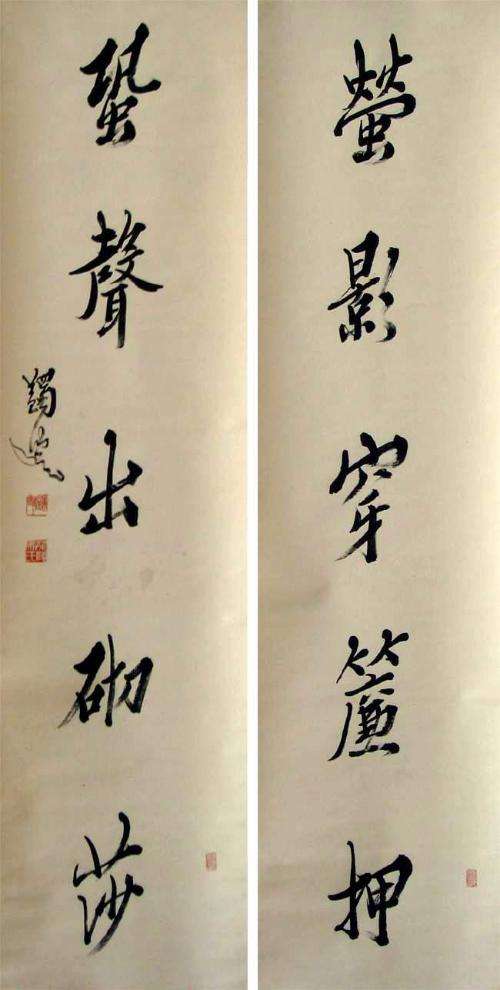 螢影穿簾押
蛩聲出砌莎
蠲